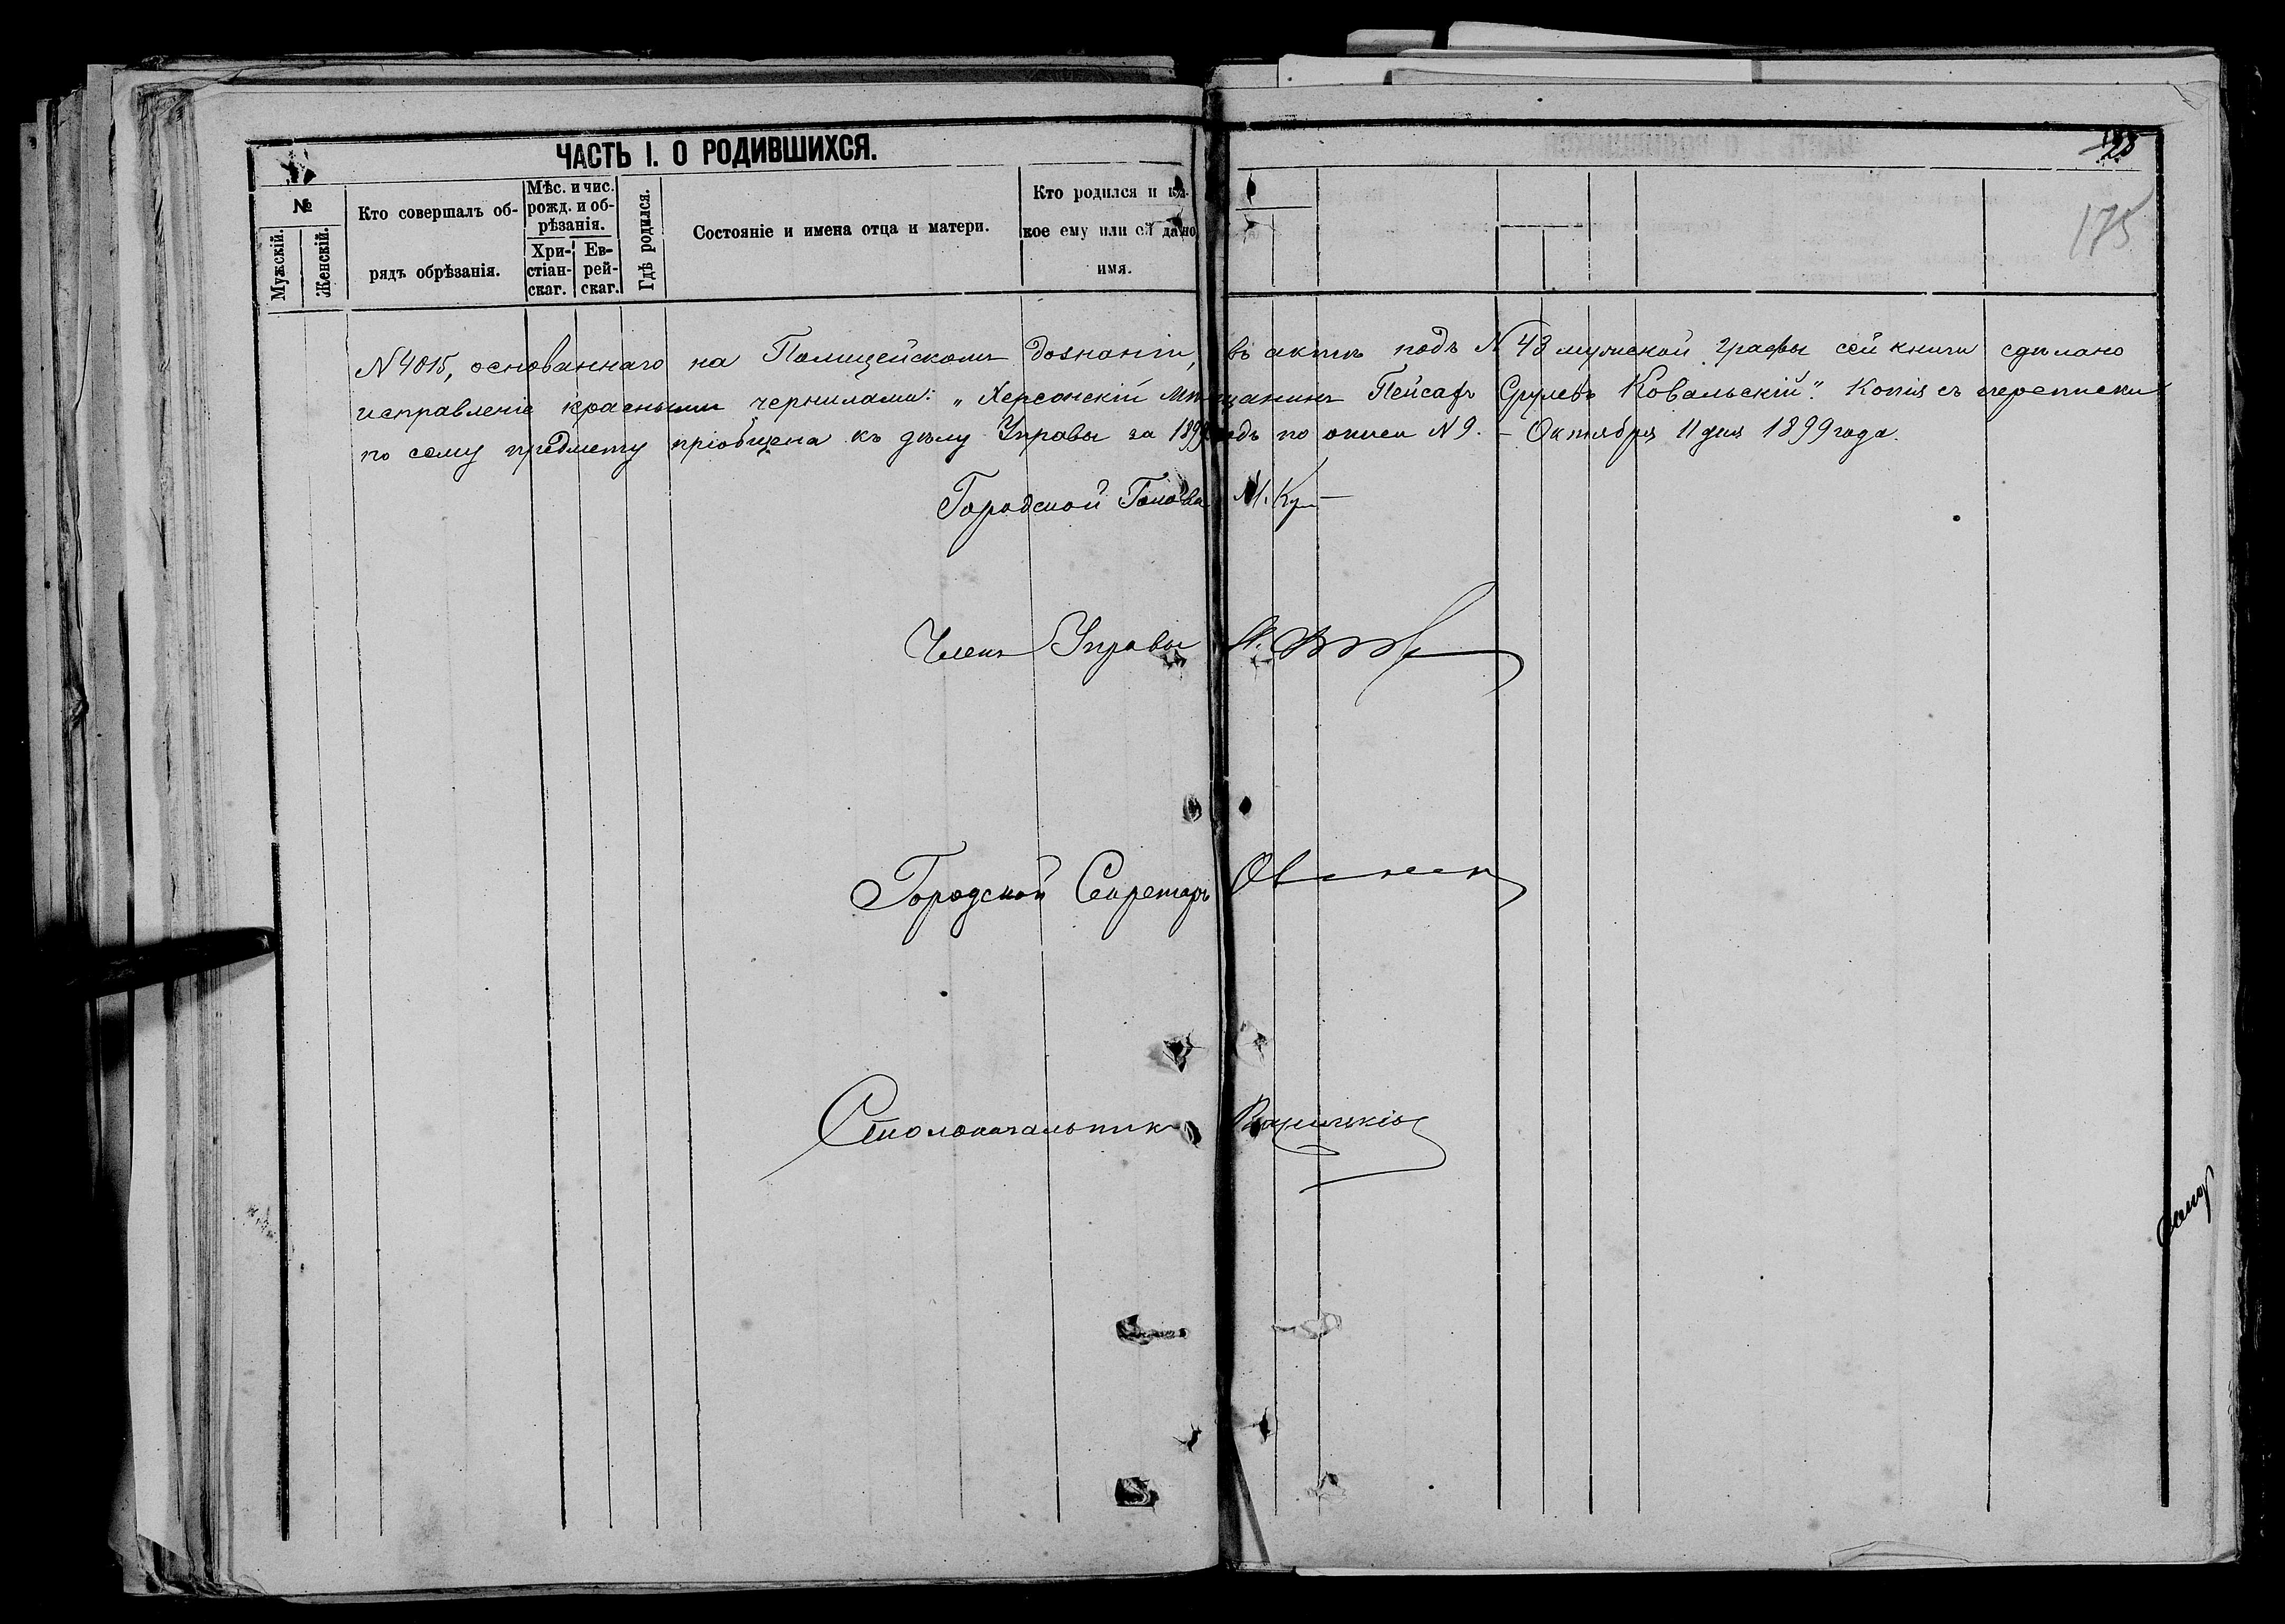 ЧАСТЬ I. О РОДИВШИХСЯ.
28
175
№
Мужскій.
Женскій.
Кто совершалъ об-
рядъ обрѣзанія.
Мѣс. и чис.
рожд. и об-
рѣзанія.
Хри-
стіан-
скаг.
Ев-
рей-
скаг.
Гдѣ родился.
Состояніе и имена отца и матери.
Кто родился и ка-
кое ему или ей дано
имя.
N 4015, основаннаго на Полицейскомъ дознаніи, въ актѣ подъ N 43 мужской графы сей книги сдѣлано
исправленіе красными чернилами: „Херсонскій Мѣщанинъ Пейсахъ Срулевъ Ковальскій". Копія съ переписки
по сему предмету пріобщена къ дѣлу Управы за 1899 по описи N 9. – Октября 11 дня 1899 года.
Городской Голова М.
Членъ Управы
Городской Секретарь
Столоначальникъ